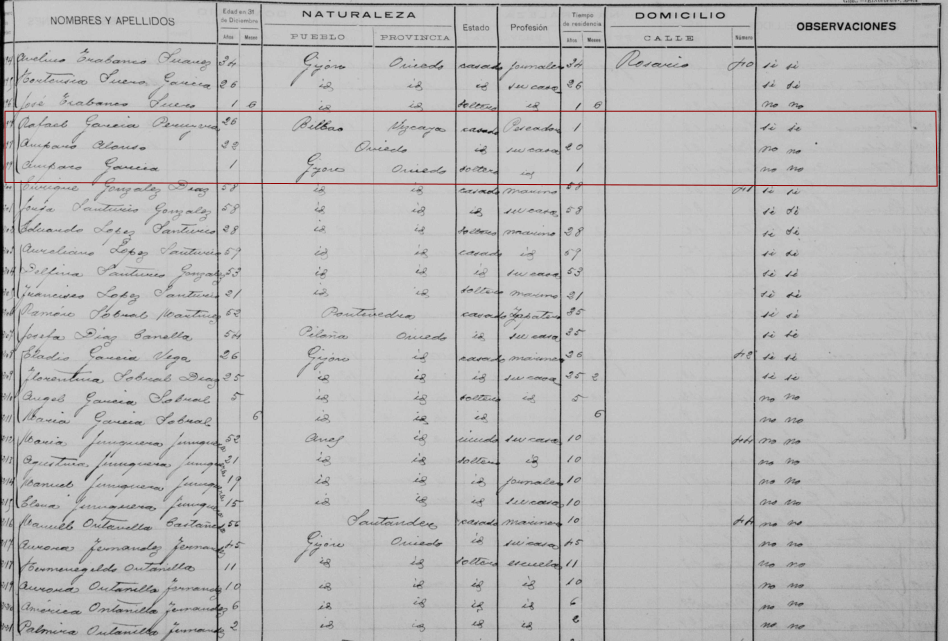 NOMBRES Y APELLIDOS Edad en 31 de Diciembre Años Meses NATURALEZA PUEBLO PROVINCIA Estado Profesión Tiempo de residencia Años Meses DOMICILIO CALLE Número OBSERVACIONES
Avelino Trabanco Suarez 34 Gijón Oviedo casado jornalero 34 Rosario 40 si si
Hortensia Suero Garcia 26 id id id su casa 26 si si
José Trabanco Suero 1 6 id id soltero id 1 6 no no
Rafael Garcia 26 Bilbao Vizcaya casado Pescador 1 si si
Amparo Alonso 22 Oviedo id su casa 20 no no
Amparo Garcia 1 Gijon Oviedo soltera id 1 no no
Enrique Gonzalez Diaz 58 id id casado marino 58 41 si si
Santurio Gonzalez 58 id id id su casa 58 si si
Eduardo Lopez Santurio 28 id id soltero marino 28 si si
Aureliano Lopez Santurio 59 id id casado id 59 si si
Delfina Santurio Gonzalez 53 id id id su casa 53 si si
Francisco Lopez Santurio 21 id id soltero marino 21 si si
Ramón Sobral Martinez 52 Pontevedra casado Zapatero 25 si si
Josefa Diaz Canella 54 Piloña Oviedo id su casa 25 si si
Eladio Garcia Vega 26 Gijón id casado marinero 26 42 si si
Florentina Sobral Diaz 25 id id id su casa 25 2 si si
Angel Garcia Sobral 5 id id soltero id 5 no no
Maria Garcia Sobral 6 id id id 6 no no
Maria Junquera 52 id viuda su casa 10 no no
Agustina Junquera 21 id id soltera id 10 no no
Manuel Junquera 19 id id id jornalero 10 no no
Elena Junquera 15 id id id su casa 10 no no
Manuel Ontanilla Castañedo 55 Santander casado marinero 10 44 no no
Aurora Fernandez Fernandez 45 Gijón Oviedo id su casa 45 no no
Hermenegildo Ontanilla 11 id id soltero escuela 11 no no
Aurora Ontanilla Fernandez 10 id id id id 10 no no
America Ontanilla Fernandez 6 id id id id 6 no no
Palmira Ontanilla Fernandez 2 id id id id 2 no no